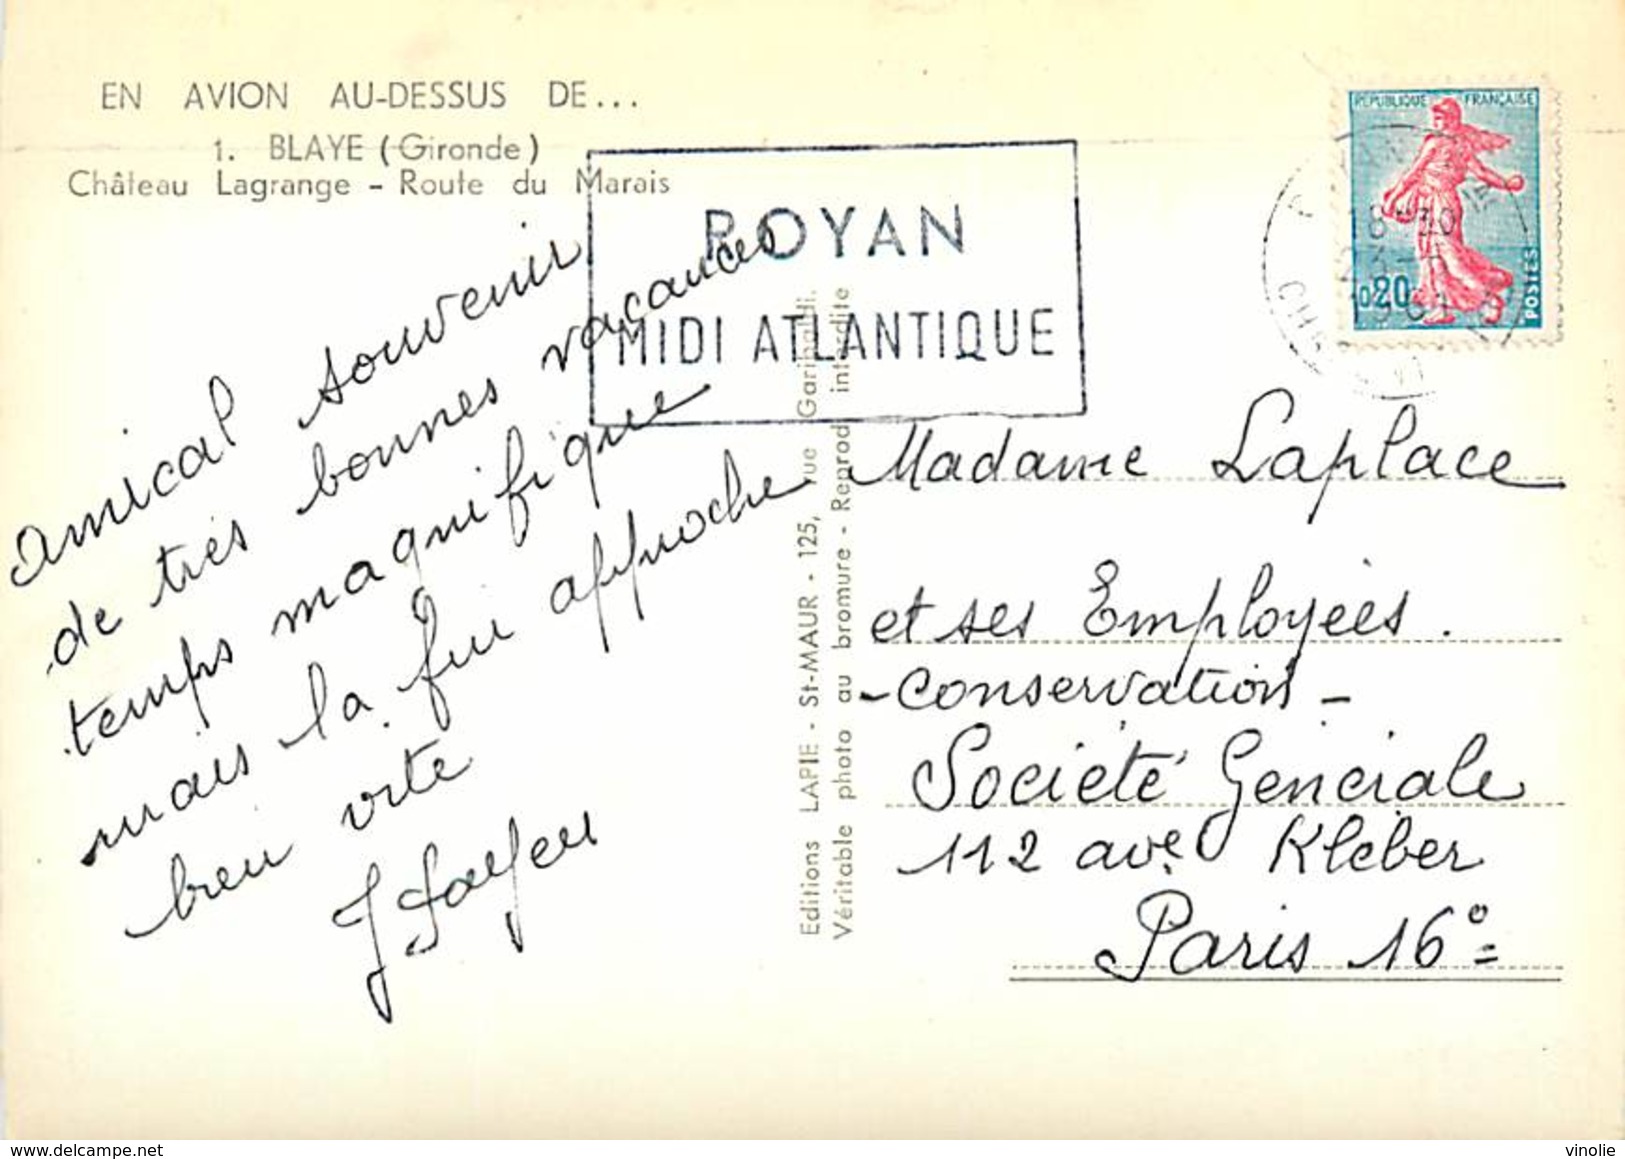 EN AVION AU-DESSUS DE...
1. BLAYE (Gironde)
Château Lagrange - Route du Marais
ROYAN
MIDI ATLANTIQUE
REPUBLIQUE FRANÇAISE
0,20
POSTES
amical souvenir
de très bonnes vacances
temps magnifique
mais la fin approche
bien vite
Editions LAPIE - St-MAUR - 125, rue Garibaldi.
Véritable photo au bromure - Reprod. interdite
Madame Laplace
et ses Employées.
-Conservation-
Société Générale
112 ave Kléber
Paris 16°
www.delcampe.net
vinolie